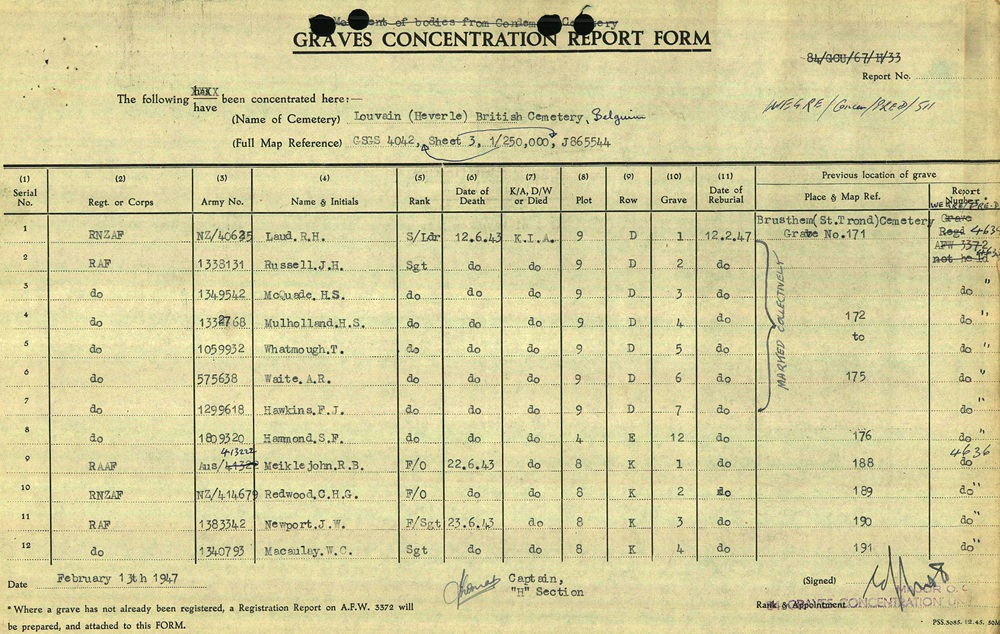 Movement of bodies from Condemned Cemetery
GRAVES CONCENTRATION REPORT FORM
84/GCU/67/H/33
Report No.
WEGRE/Concen/PRED/511
The following has/have been concentrated here:—
(Name of Cemetery) Louvain (Heverle) British Cemetery, Belgium
(Full Map Reference) GSGS 4042, Sheet 3, 1/250,000, J865544
(1) Serial No. (2) Regt. or Corps (3) Army No. (4) Name & Initials (5) Rank (6) Date of Death (7) K/A, D/W or Died (8) Plot (9) Row (10) Grave (11) Date of Reburial Previous location of grave Place & Map Ref. Report Number*
WEGRE/PRE.D
1 RNZAF NZ/40625 Laud.R.H. S/Ldr 12.6.43 K.I.A. 9 D 1 12.2.47 Brusthem(St.Trond)Cemetery Grave No.171 Grave Regd 4634
2 RAF 1338131 Russell.J.H. Sgt do do 9 D 2 do AFW 3372 not held
3 do 1349542 McQuade.H.S. do do do 9 D 3 do do "
4 do 1332768 Mulholland.H.S. do do do 9 D 4 do 172 do "
to
5 do 1059932 Whatmough.T. do do do 9 D 5 do do "
6 do 575638 Waite.A.R. do do do 9 D 6 do 175 do "
7 do 1299618 Hawkins.F.J. do do do 9 D 7 do do "
MARKED COLLECTIVELY
8 do 1809320 Hammond.S.F. do do do 4 E 12 do 176 do "
9 RAAF Aus/413222 Meiklejohn.R.B. F/O 22.6.43 do 8 K 1 do 188 4636 do
10 RNZAF NZ/414679 Redwood.C.H.G. F/O do do 8 K 2 do 189 do "
11 RAF 1383342 Newport.J.W. F/Sgt 23.6.43 do 8 K 3 do 190 do "
12 do 1340793 Macaulay.W.C. Sgt do do 8 K 4 do 191 do "
Date February 13th 1947
Captain,
"H" Section
(Signed)
MAJOR O.C.
Rank & Appointment
GRAVES CONCENTRATION UNIT
* Where a grave has not already been registered, a Registration Report on A.F.W. 3372 will
be prepared, and attached to this FORM.
PSS.3085. 12.45. 50M